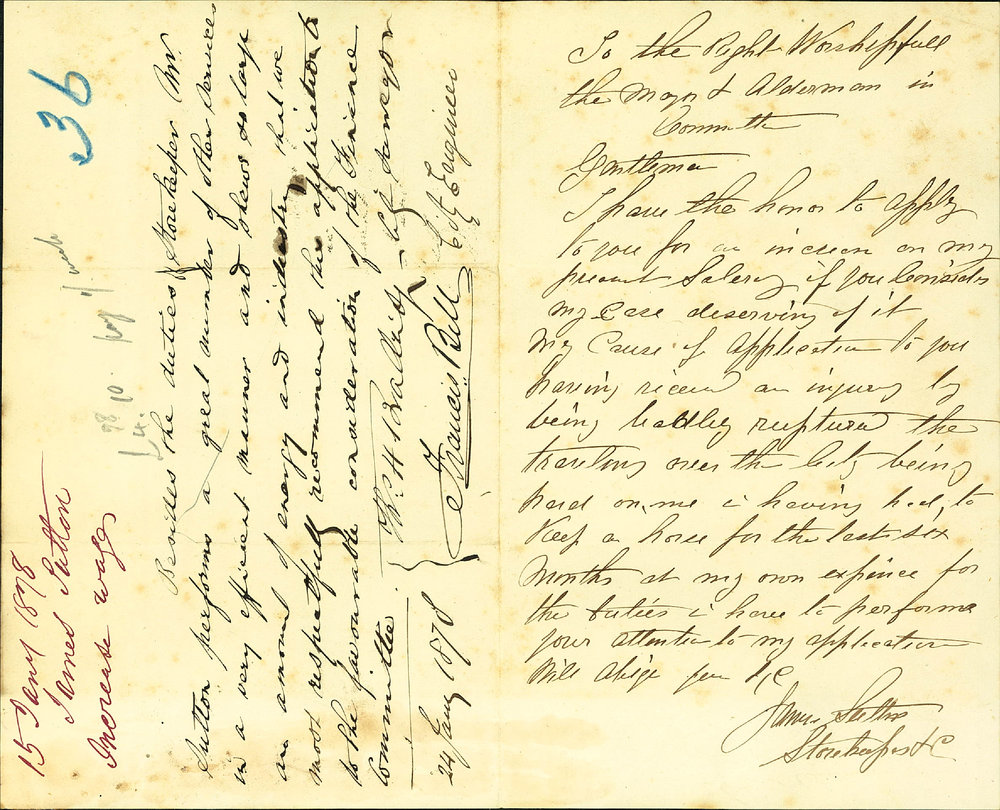 To the Right Worshipfull
the Mayor & Alderman in
Committe
Gentleman
I have the honor to apply
to you for an increase on my
present Salery if you Consider
my Case deserving of it
My Cause of Application to you
having receved an injury by
being baddley rupturd the
traveling over the City being
hard on me i having had to
Keep a horse for the last six
Months at my own expence for
the duties i have to performe
your attention to my application
Will oblige you &c
James Sutton
Storekeeper &c
15 Jany 1878
James Sutton
Increase wages
236
/ week
Besides the duties of Storekeeper Mr.
Sutton performs a great number of other services
in a very efficient manner and shews so large
an amount of energy and industry that we
most respectfully recommend this application to
to the favourable consideration of the Finance
Committee.
City Surveyor
Francis Bell City Engineer
24 Jany 1878